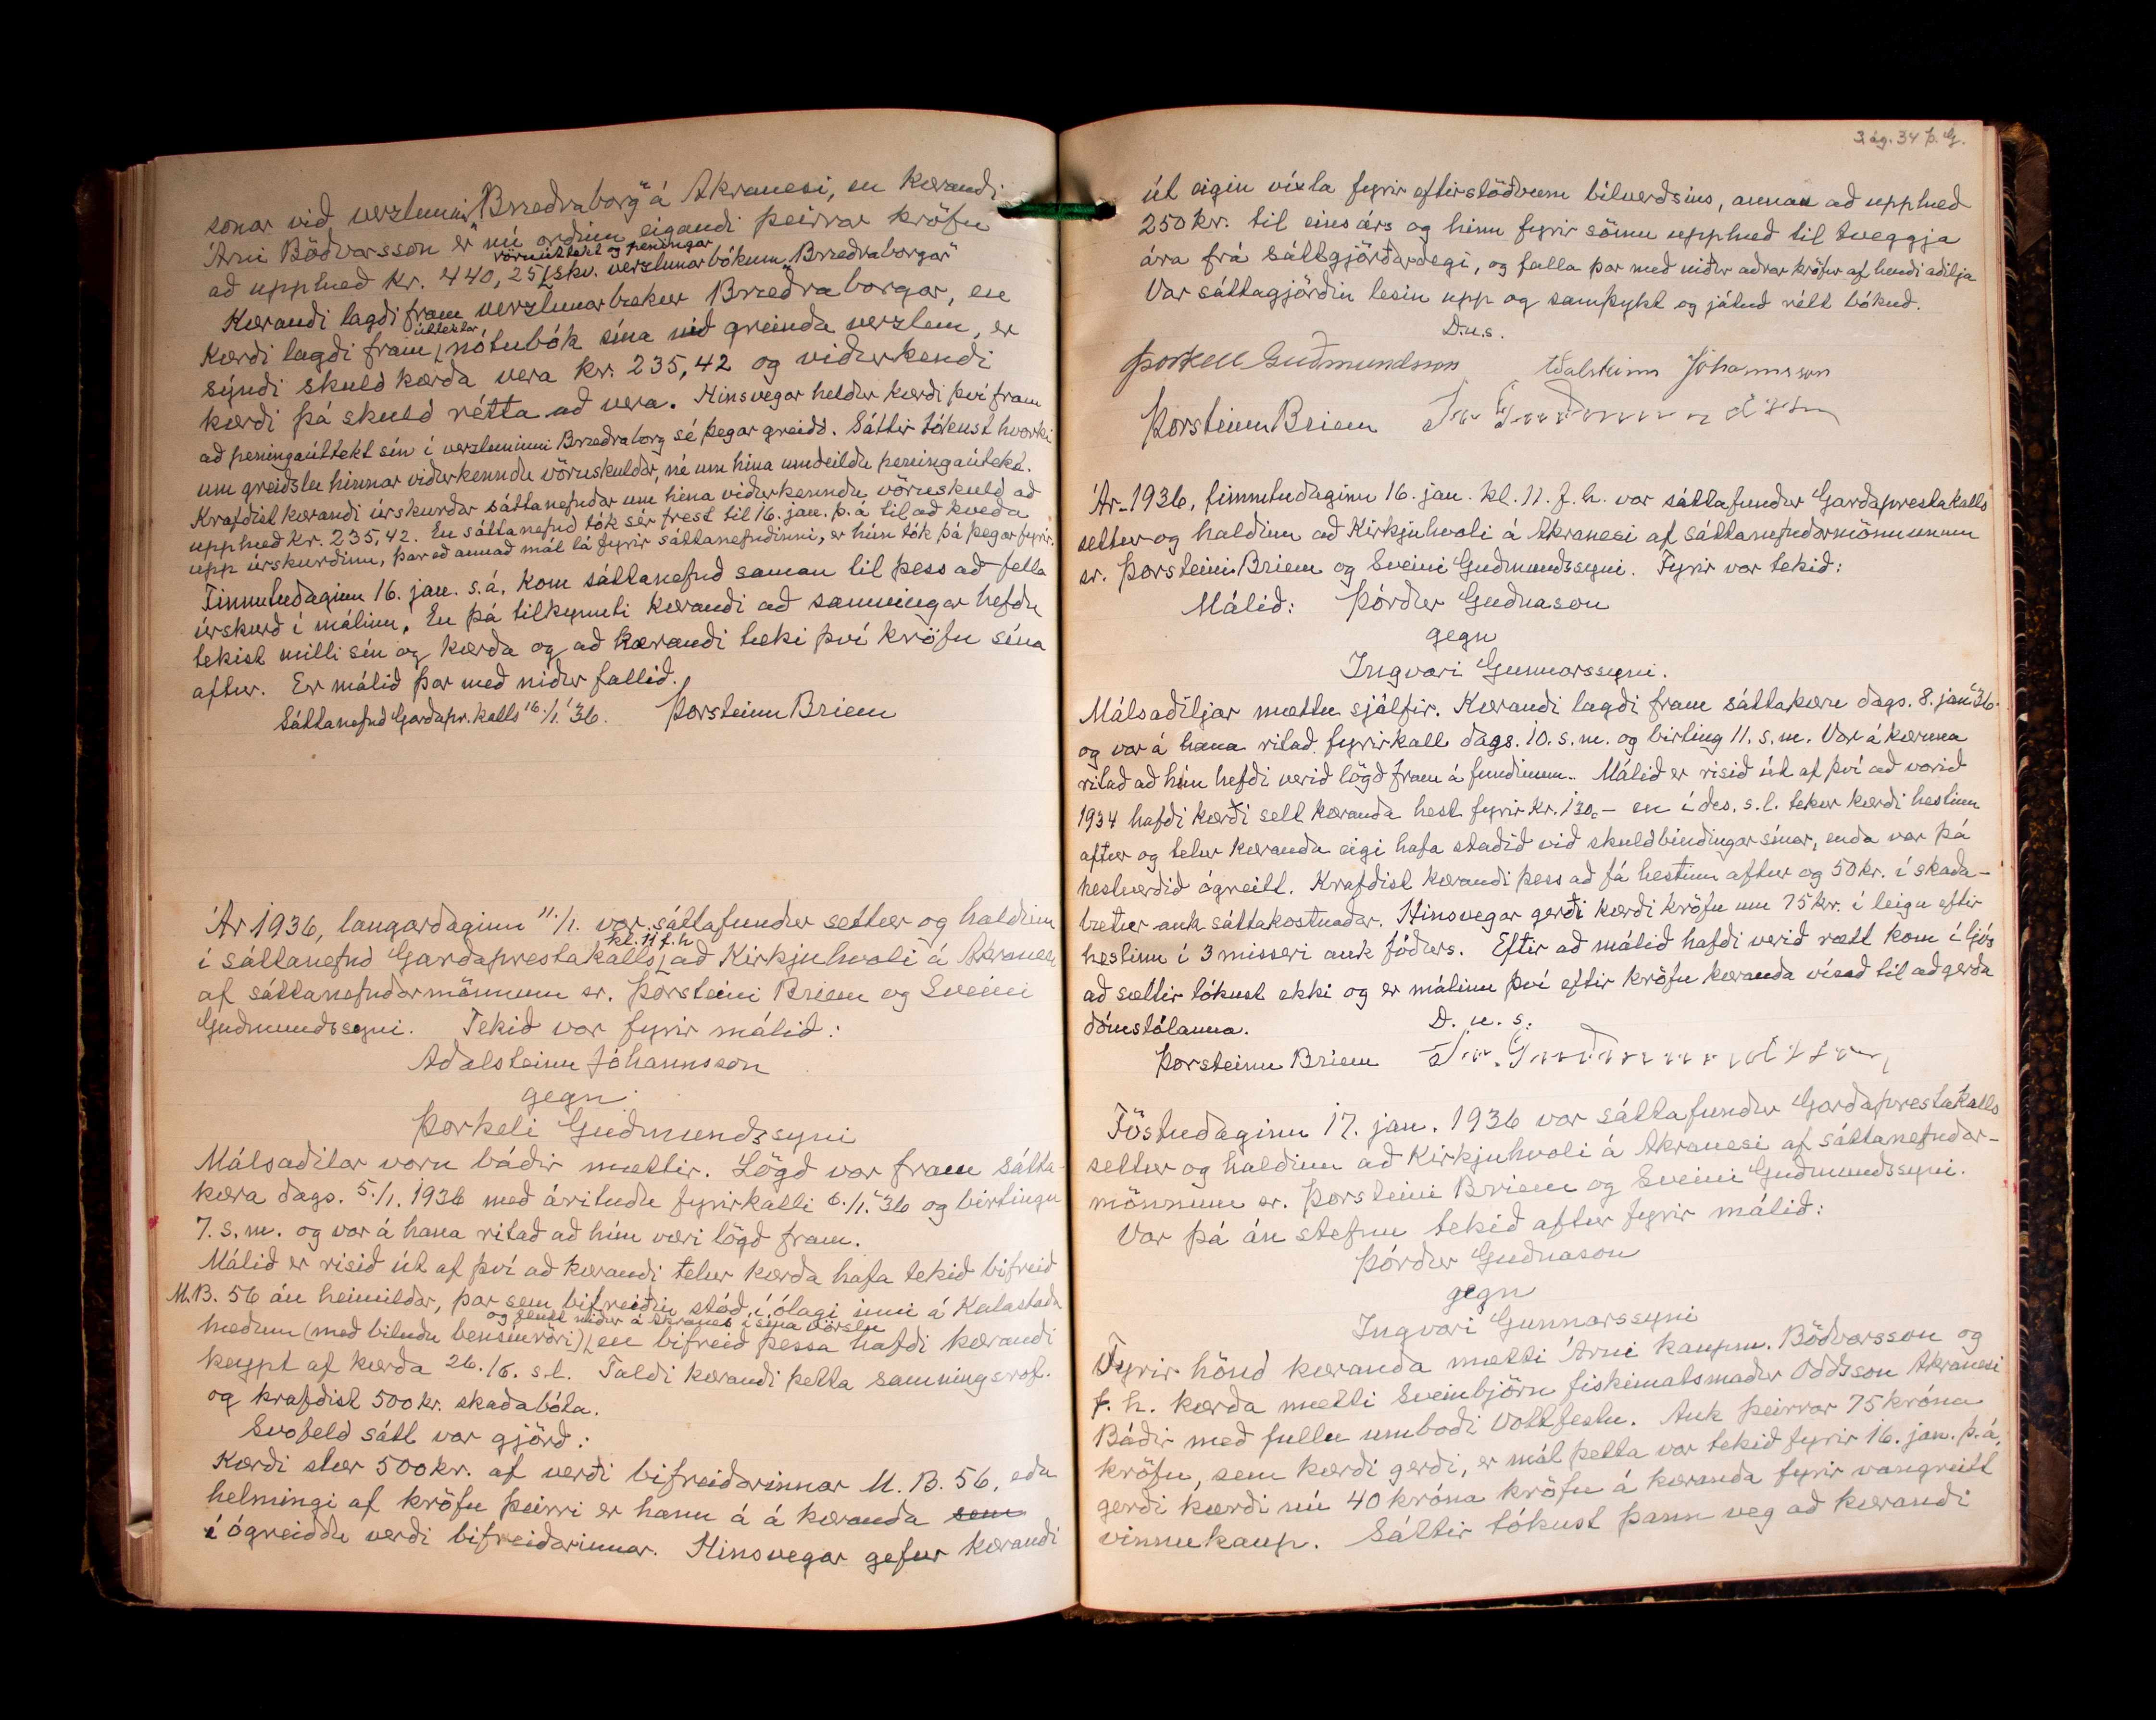 sonar við verzlunina „Bræðraborg“ á Akranesi, en kærandi
Árni Böðvarsson er nú orðinn eigandi þeirrar kröfu
vöruúttekt og peningar
að upphæð kr. 440,25 skv. verzlunarbókum „Bræðraborgar“
Kærandi lagði fram verzlunarbækur Bræðraborgar, en
úttektar
Kærði lagði fram nótubók sína við greinda verzlun, er
sýndi skuld kærða vera kr. 235,42 og viðurkendi
kærði þá skuld rétta að vera. Hinsvegar heldur kærði því fram
að peningaúttekt sín í verzluninni Bræðraborg sé þegar greidd. Sáttir tókust hvorki
um greiðslu hinnar viðurkenndu vöruskuldar, né um hina umdeildu peningaúttekt.
Krafðist kærandi úrskurðar sáttanefndar um hina viðurkenndu vöruskuld að
upphæð kr. 235,42. En sáttanefnd tók sér frest til 16. jan. þ.á til að kveða
upp úrskurðinn, þar eð annað mál lá fyrir sáttanefndinni, er hún tók þá þegar fyrir.
Fimmtudaginn 16. jan. s.á. kom sáttanefnd saman til þess að fella
úrskurð í málinu. En þá tilkynnti kærandi að samningar hefðu
tekist milli sín og kærða og að kærandi tæki því kröfu sína
aftur. Er málið þar með niður fallið.
Sáttanefnd Garðapr.kalls 16./1. '36. Þorsteinn Briem
Ár 1936, laugardaginn 11./1. var sáttafundur settur og haldinn
kl. 11 f.h
í sáttanefnd Garðaprestakalls að Kirkjuhvoli á Akranesi
af sáttanefndarmönnum sr. Þorsteini Briem og Sveini
Guðmundssyni. Tekið var fyrir málið:
Aðalsteinn Jóhannsson
gegn
Þorkeli Guðmundssyni
Málsaðilar voru báðir mættir. Lögð var fram sátta-
kæra dags. 5./1. 1936 með árituðu fyrirkalli 6./1. '36 og birtingu
7. s.m. og var á hana ritað að hún væri lögð fram.
Málið er risið út af því að kærandi telur kærða hafa tekið bifreið
M.B. 56 án heimildar, þar sem bifreiðin stóð í ólagi inni á Kalastaða
og flutt niður á Akranes í sína vörslu
hæðum (með biluðu bensínröri), en bifreið þessa hafði kærandi
keypt af kærða 26./6. s.l. Taldi kærandi þetta samningsrof.
og krafðist 500 kr. skaðabóta.
Svofeld sátt var gjörð:
Kærði slær 500 kr. af verði bifreiðarinnar M.B. 56, eða
helmingi af kröfu þeirri er hann á á kæranda sem
í ógreiddu verði bifreiðarinnar. Hinsvegar gefur kærandi
3ág. 34 Þ. G.
út eigin víxla fyrir eftirstöðvum bílverðsins, annan að upphæð
250 kr. til eins árs og hinn fyrir sömu upphæð til tveggja
ára frá sáttgjörðardegi, og falla þar með niður aðrar kröfur af hendi aðilja
Var sáttagjörðin lesin upp og samþykt og játuð rétt bókuð.
D.u.s.
Þorkell Guðmundsson Aðalsteinn Jóhannsson
Þorsteinn Briem Sv. Guðmundsson
Ár 1936, fimmtudaginn 16. jan. kl. 11. f.h. var sáttafundur Garðaprestakalls
settur og haldinn að Kirkjuhvoli á Akranesi af sáttanefndarmönnunum
sr. Þorsteini Briem og Sveini Guðmundssyni. Fyrir var tekið:
Málið: Þórður Guðnason
gegn
Ingvari Gunnarssyni.
Málsaðiljar mættu sjálfir. Kærandi lagði fram sáttakæru dags. 8. jan '36
og var á hana ritað fyrirkall dags. 10. s.m. og birting 11. s.m. Var á kæruna
ritað að hún hefði verið lögð fram á fundinum. Málið er risið út af því að vorið
1934 hafði kærði selt kæranda hest fyrir kr. 130.- en í des. s.l. tekur kærði hestinn
aftur og telur kæranda eigi hafa staðið við skuldbindingar sínar, enda var þá
hestverðið ógreitt. Krafðist kærandi þess að fá hestinn aftur og 50 kr. í skaða-
bætur auk sáttakostnaðar. Hinsvegar gerði kærði kröfu um 75 kr. í leigu eftir
hestinn í 3 misseri auk fóðurs. Eftir að málið hafði verið rætt kom í ljós
að sættir tókust ekki og er málinu því eftir kröfu kæranda vísað til aðgerða
dómstólanna.
D. u. s.
Þorsteinn Briem Sv. Guðmundsson
Föstudaginn 17. jan. 1936 var sáttafundur Garðaprestakalls
settur og haldinn að Kirkjuhvoli á Akranesi af sáttanefndar-
mönnum sr. Þorsteini Briem og Sveini Guðmundssyni.
Var þá án stefnu tekið aftur fyrir málið:
Þórður Guðnason
gegn
Ingvari Gunnarssyni
Fyrir hönd kæranda mætti Árni kaupm. Böðvarsson og
f. h. kærða mætti Sveinbjörn fiskimatsmaður Oddsson Akranesi
Báðir með fullu umboði vottfestu. Auk þeirrar 75 króna
kröfu, sem kærði gerði, er mál þetta var tekið fyrir 16. jan. þ.á,
gerði kærði nú 40 króna kröfu á kæranda fyrir vangreitt
vinnukaup. Sáttir tókust þann veg að kærandi